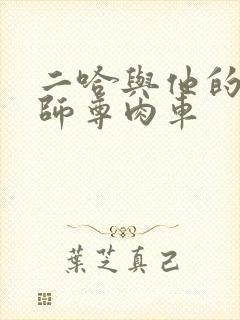 二哈與他的
師尊肉車
葉芝真己